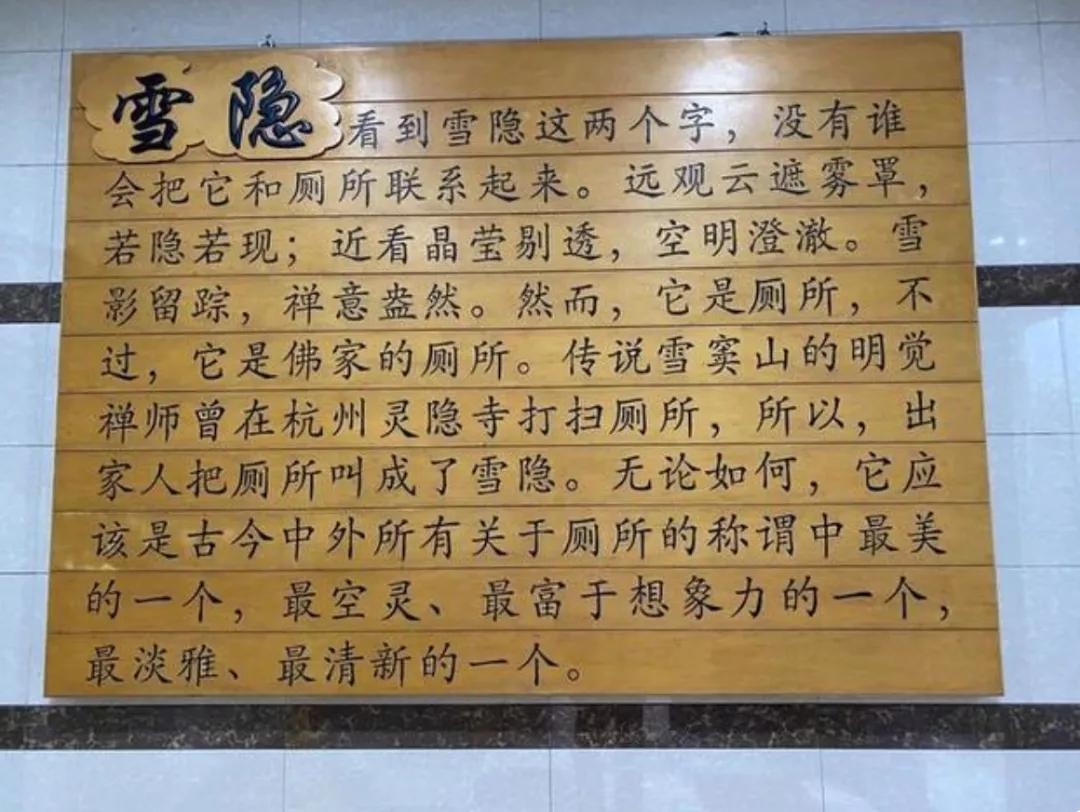 雪隐看到雪隐这两个字，没有谁
会把它和厕所联系起来。远观云遮雾罩，
若隐若现；近看晶莹剔透，空明澄澈。雪
影留踪，禅意盎然。然而，它是厕所，不
过，它是佛家的厕所。传说雪窦山的明觉
禅师曾在杭州灵隐寺打扫厕所，所以，出
家人把厕所叫成了雪隐。无论如何，它应
该是古今中外所有关于厕所的称谓中最美
的一个，最空灵、最富于想象力的一个，
最淡雅、最清新的一个。